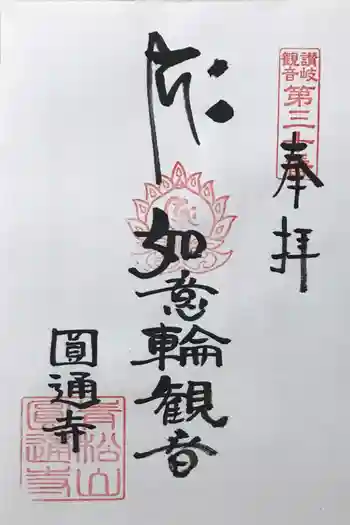 讃岐
観音
第三十
奉拝
如意輪観音
圓通寺
青松山
圓通寺